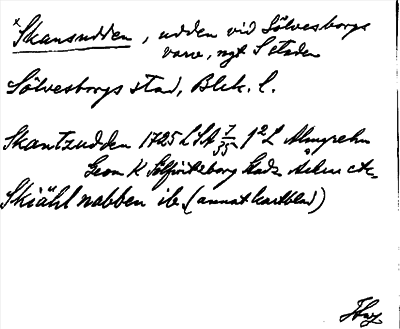 *Skansudden, udden vid Sölvesborgs
varv, ngt S staden
Sölvesborgs stad, Blek. l.
Skantzudden 1725 LSA 7/35 1²L Almgrehn
Geom K Sölfvitzborg Stadz
Skiähl nabben ib. (annat kartblad)